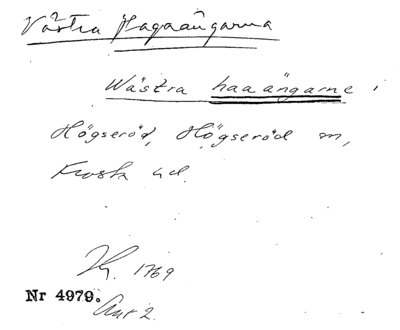 Västra Hagaängarna
Wästra haaängarne i
Högseröd, Högseröd sn,
Frosta hd.
Hy. 1769
Nr 4979.
Akt 2.